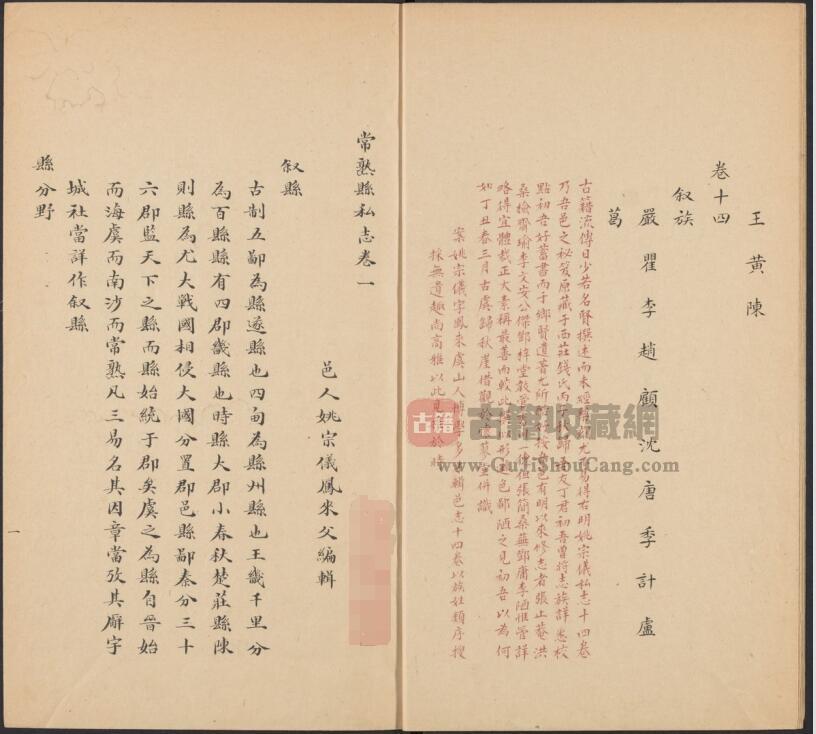 王 黃 陳
卷十四
叙族
嚴 瞿 李 趙 顧 沈 唐 季 計 盧
葛
古籍流傳日少若名賢撰述而未經尤易得右明姚宗儀私志十四卷
乃吾邑之秘笈原藏于西莊錢氏丙丁歸友丁君初吾曾將志族詳悉校
點初吾好蓄書而于鄉賢遺著尤所邑有明以來修志者張止菴洪
桑檢齋瑜李文安公傑鄧梓堂敎管一種但張簡桑蕪鄧庸李陋惟管詳
略得宜體裁正大素稱最善而較此形色鄙陋之見初吾以為何
如丁丑春三月古虞歸秋崖借觀於併識
案姚宗儀字鳳來虞山人博學多輯邑志十四卷以族姓類序搜
採無遺趣尚高雅以此見於時
常熟縣私志卷一
邑人姚宗儀鳳來父編輯
叙縣
古制五鄙為縣遂縣也四甸為縣州縣也王畿千里分
為百縣縣有四郡畿縣也時縣大郡小春秋楚莊縣陳
則縣為尤大戰國相侵大國分置郡邑縣鄙秦分三十
六郡監天下之縣而縣始統于郡矣虞之為縣自晉始
而海虞而南沙而常熟凡三易名其因章當攷其廨宇
城社當詳作叙縣
縣分野
一
古籍
古籍收藏网
www.GuJiShouCang.com